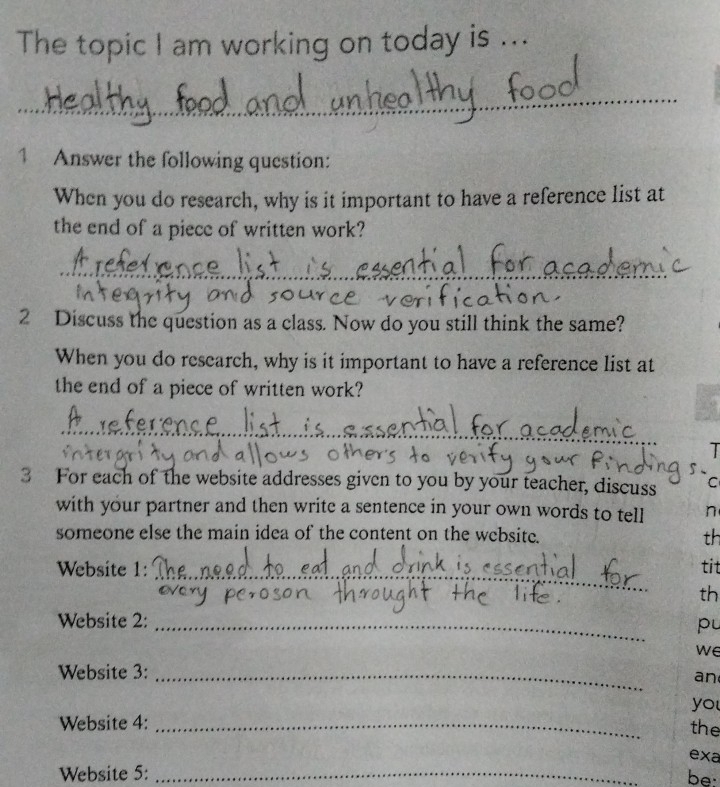 The topic I am working on today is ...
Healthy food and unhealthy food
1 Answer the following question:
When you do research, why is it important to have a reference list at
the end of a piece of written work?
A reference list is essential for academic
integrity and source verification.
2 Discuss the question as a class. Now do you still think the same?
When you do research, why is it important to have a reference list at
the end of a piece of written work?
A reference list is essential for academic
intergrity and allows others to verify your findings.
3 For each of the website addresses given to you by your teacher, discuss
with your partner and then write a sentence in your own words to tell
someone else the main idea of the content on the website.
Website 1: The need to eat and drink is essential for
every peroson throught the life.
Website 2:
Website 3:
Website 4:
Website 5:
T
c
n
th
tit
th
pu
we
an
you
the
exa
be: